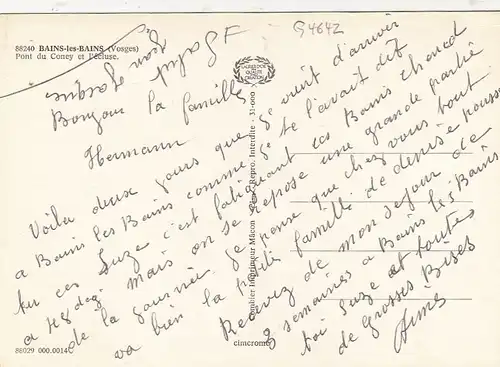 88240 BAINS-les-BAINS (Vosges)
Pont du Coney et l'écluse.
G4642
Salut
Jean Jacques
Bonjour la famille
Hermann
Voila deux jours que je vient d'arriver
a Bains les Bains comme je te l'avait dit
tu ces Suze c'est fatiguant ces Bains chaud
a 48 deg. mais on se repose une grande partie
de la journée. Je pense que chez vous tout
va bien la petite famille de denise pousse
Recevez de mon séjour de
3 semaines a Bains les Bains
toi Suze et toutes
de grosses Bises
Aimé
LA GRIFFE DE QUALITÉ MÂCON
Combier Imprimeur Mâcon
Repro. Interdite - 31-000
cimcrome
88029 000.0014